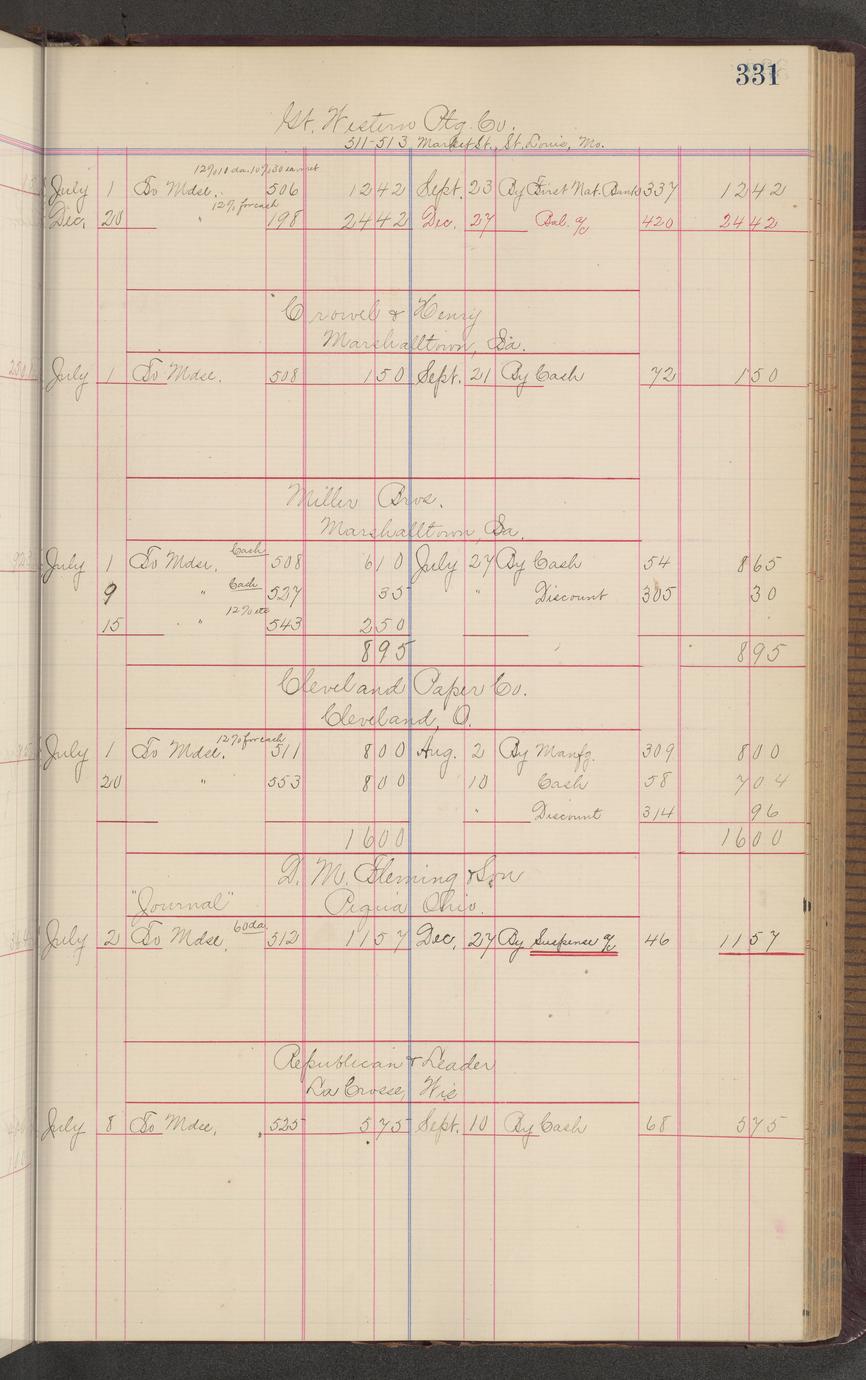 331
Gt. Western Ptg. Co.
511-513 Market St., St. Louis, Mo.
July 1 To Mdse. 506 1242 Sept. 23 By First Nat. Bank 337 1242
12% for cash
Dec. 20 " 198 2442 Dec. 27 Bal. a/c 420 2442
Crowel & Henry
Marshalltown, Ia.
July 1 To Mdse. 508 150 Sept. 21 By Cash 72 150
Miller Bros.
Marshalltown, Ia.
July 1 To Mdse. Cash 508 610 July 27 By Cash 54 865
9 " Cash 527 35 " Discount 305 30
15 " 543 250
895 895
Cleveland Paper Co.
Cleveland, O.
July 1 To Mdse. 12% for cash 511 800 Aug. 2 By Manfg. 309 800
20 " 553 800 10 Cash 58 704
" Discount 314 96
1600 1600
D. M. Fleming & Son
"Journal" Piqua Ohio.
July 2 To Mdse. 60 da. 512 1157 Dec. 27 By Suspense a/c 46 1157
Republican & Leader
La Crosse, Wis
July 8 To Mdse. 525 575 Sept. 10 By Cash 68 575